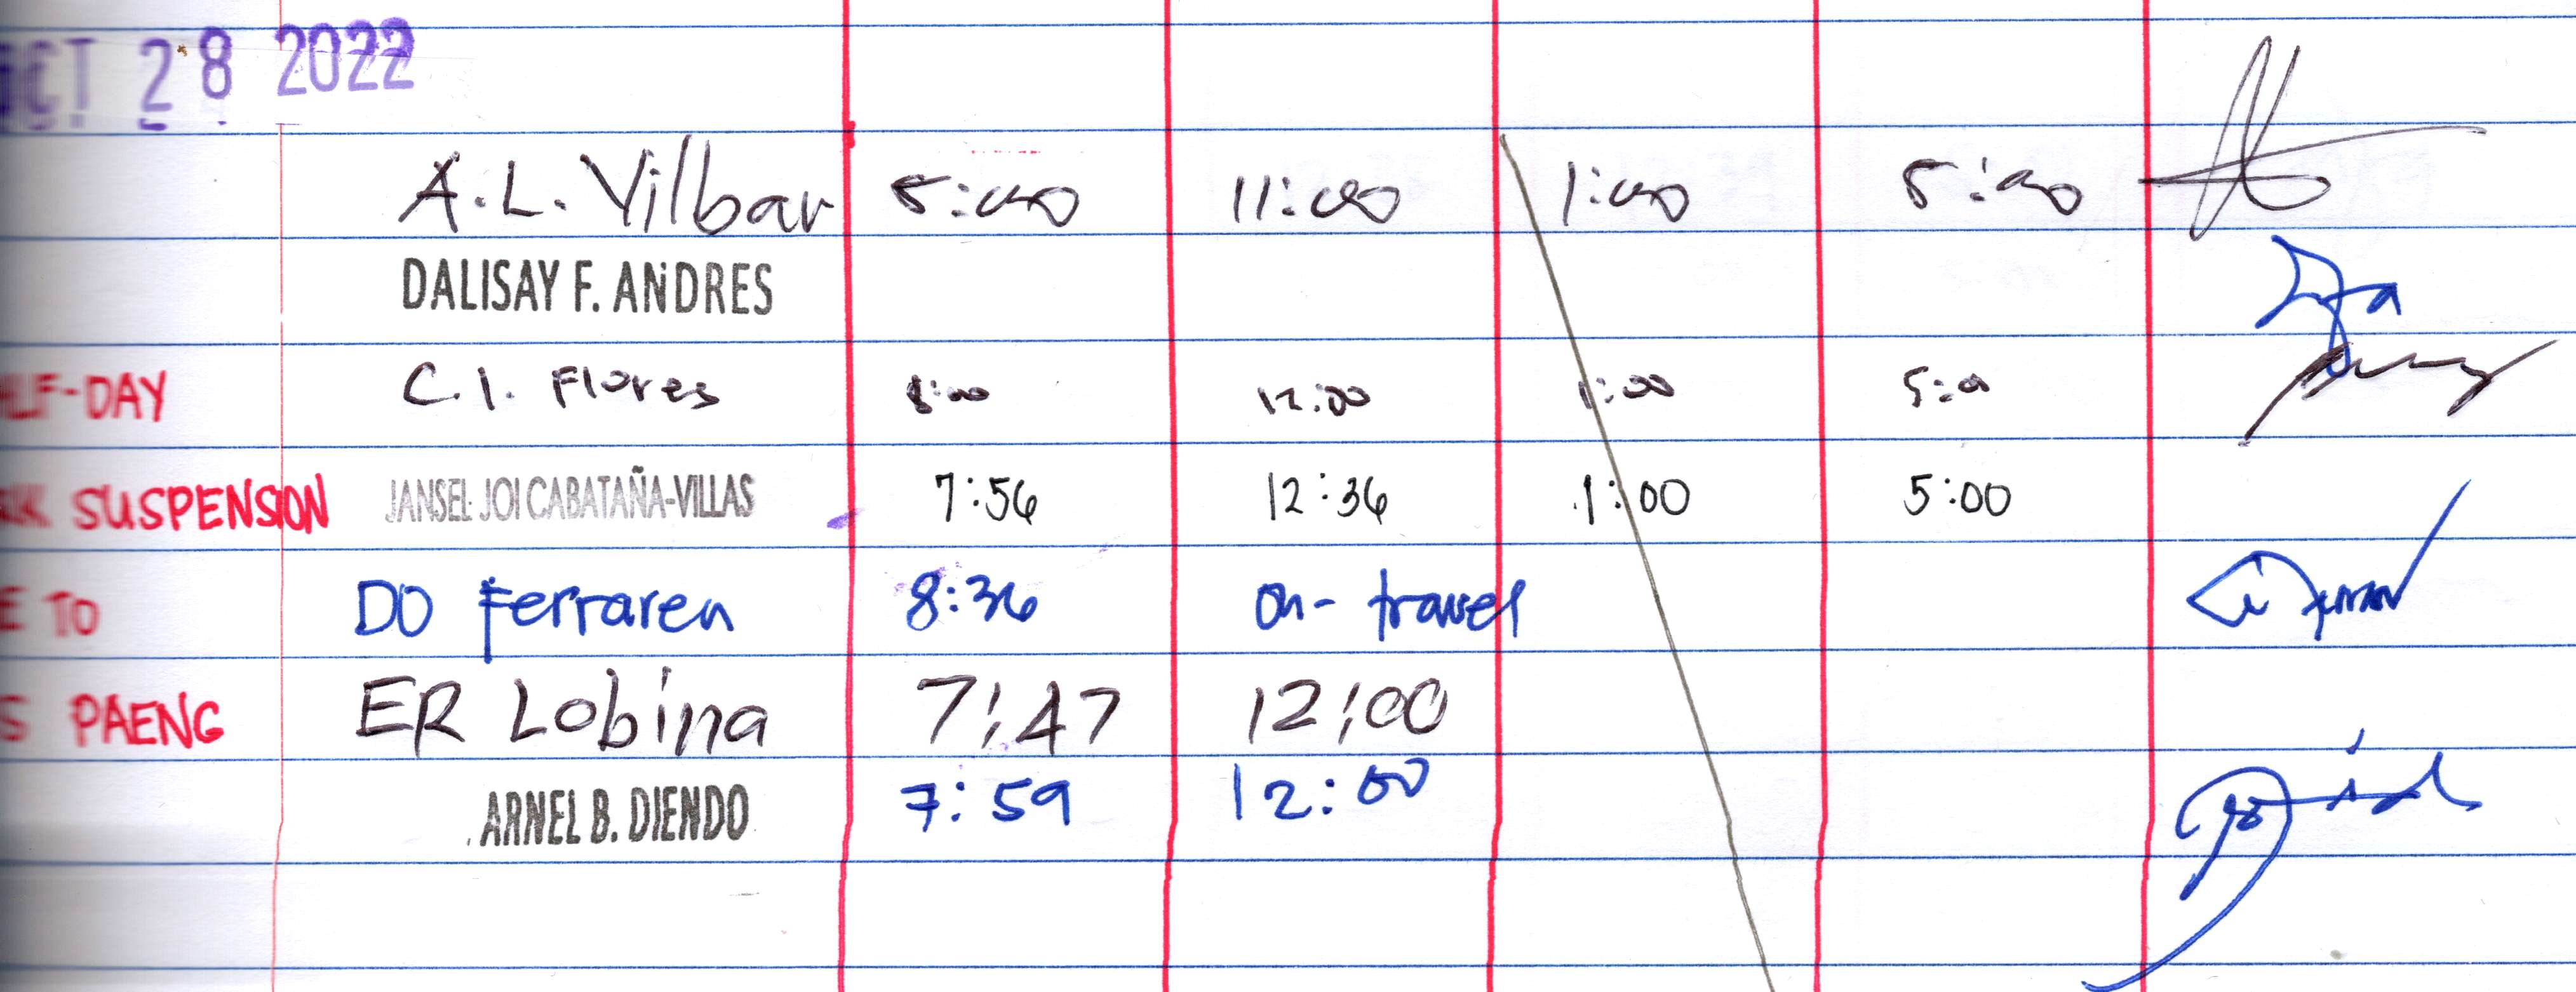 OCT 28 2022
A.L. Vilbar 8:00 11:00 1:00 5:00
DALISAY F. ANDRES
HALF-DAY C.I. Flores 8:00 12:00 1:00 5:00
SUSPENSION JANSEL JOI CABATAÑA-VILLAS 7:56 12:36 1:00 5:00
E TO DO Ferraren 8:36 on-travel
S PAENG ER Lobina 7:47 12:00
ARNEL B. DIENDO 7:59 12:00